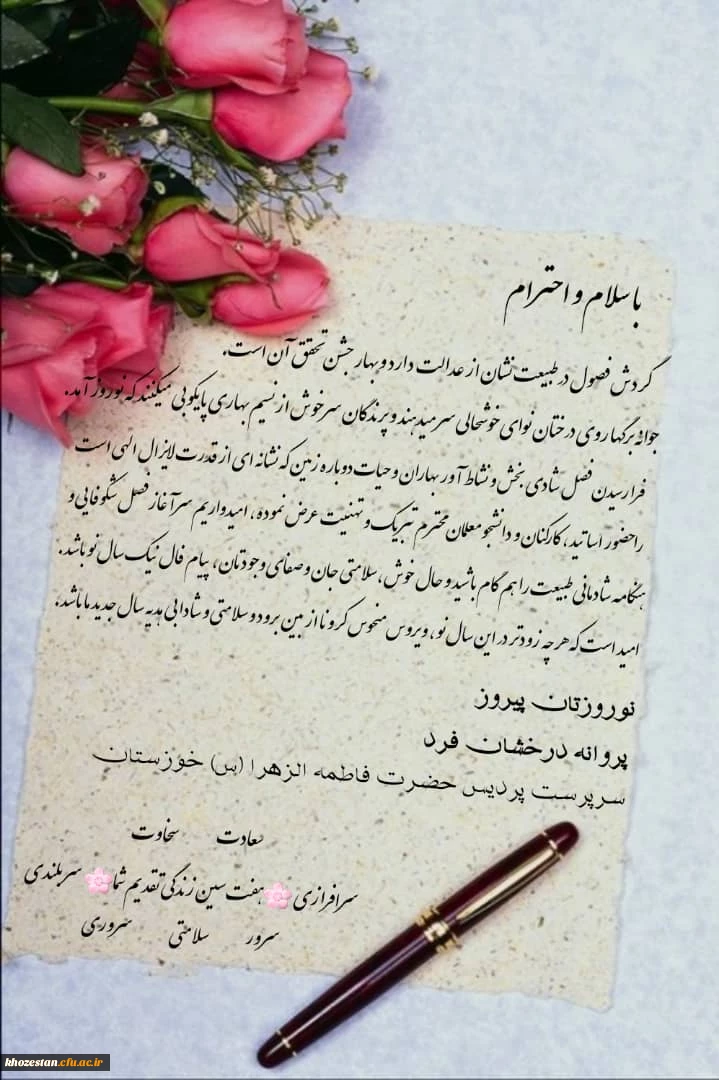 با سلام و احترام
گردش فصول در طبیعت نشان از عدالت دارد و بهار جشن تحقق آن است.
جوانهٔ برگها روی درختان نوای خوشحالی سرمیدهند و پرندگان سرخوش از نسیم بهاری پایکوبی میکنند که نوروز آمد.
فرارسیدن فصل شادی بخش و نشاط آور بهاران و حیات دوباره زمین که نشانه ای از قدرت لایزال الهی است
را حضور اساتید، کارکنان و دانشجو معلمان محترم تبریک و تهنیت عرض نموده، امیدواریم سرآغاز فصل شکوفایی و
هنگامه شادمانی طبیعت را هم گام باشید و حال خوش، سلامتی جان و صفای وجودتان، پیام فال نیک سال نو باشد.
امید است که هرچه زودتر در این سال نو، ویروس منحوس کرونا از بین برود و سلامتی و شادابی هدیه سال جدید ما باشد.
نوروزتان پیروز
پروانه درخشان فرد
سرپرست پردیس حضرت فاطمه الزهرا (س) خوزستان
سعادت سخاوت
سرافرازی 🌸 هفت سین زندگی تقدیم شما 🌸 سربلندی
سرور سلامتی سروری
khozestan.cfu.ac.ir